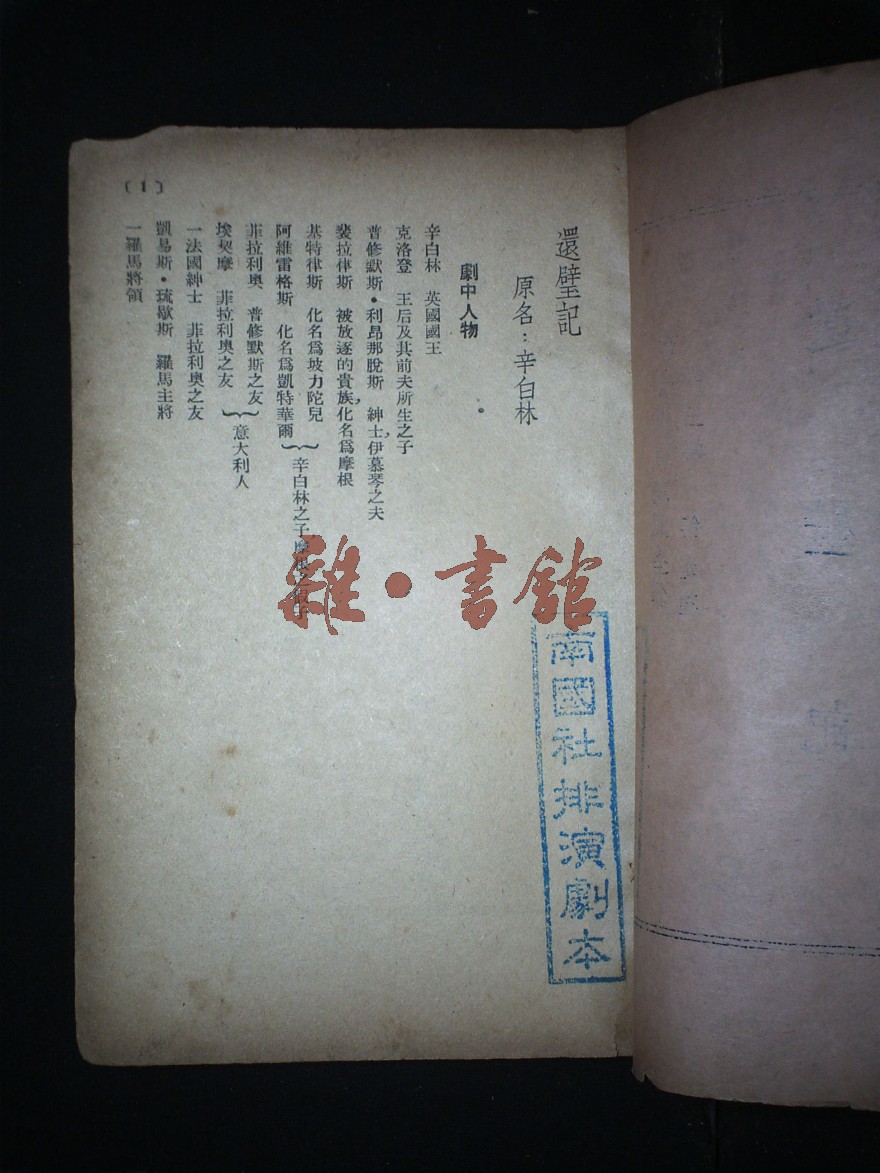 還璧記
原名：辛白林
劇中人物
辛白林　英國國王
克洛登　王后及其前夫所生之子
普修默斯・利昂那脫斯　紳士，伊慕琴之夫
裴拉律斯　被放逐的貴族，化名爲摩根
基特律斯　化名爲坡力陀兒
阿維雷格斯　化名爲凱特華爾
辛白林之子，摩根之
菲拉利奧　普修默斯之友
埃契摩　菲拉利奧之友
意大利人
一法國紳士　菲拉利奧之友
凱易斯・琉歇斯　羅馬主將
一羅馬將領
〔1〕
雜・書館
南國社排演劇本